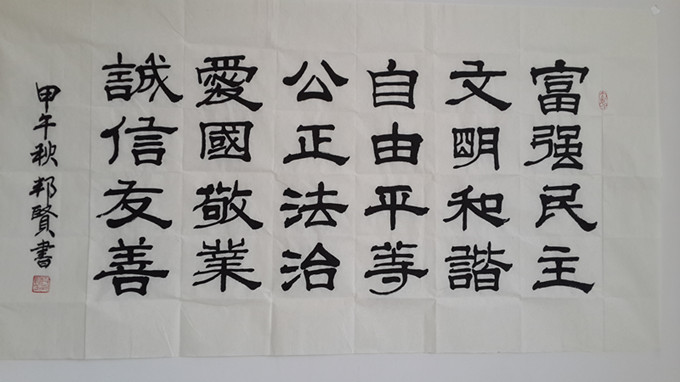 富强民主
文明和諧
自由平等
公正法治
愛國敬業
誠信友善
甲午秋邦賢書